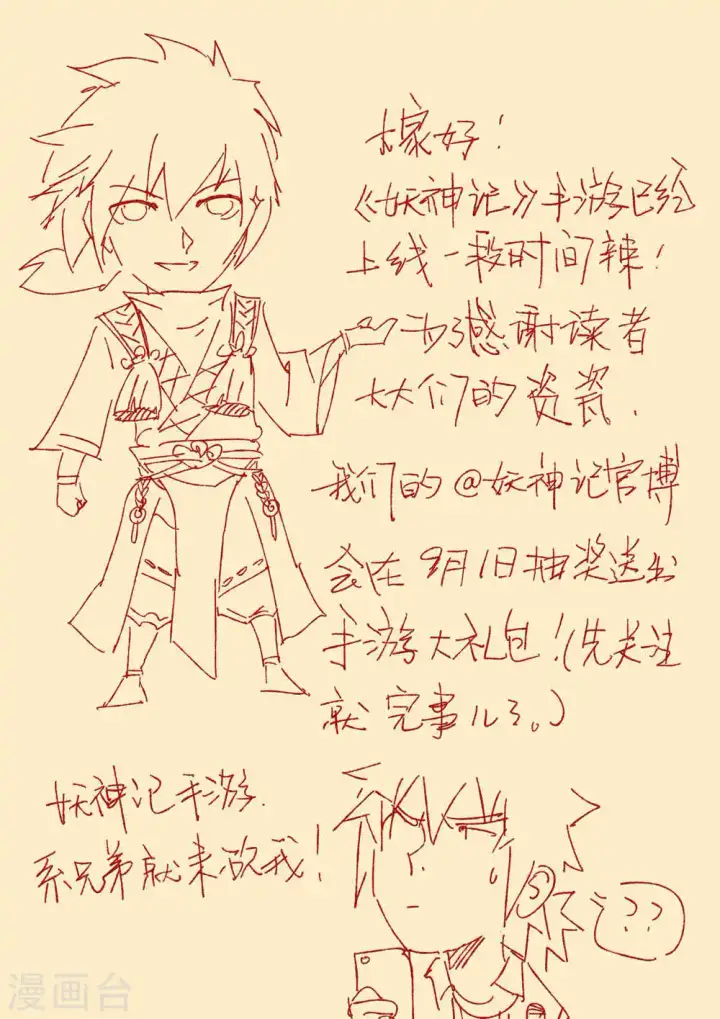 大家好！
《妖神记》手游已经
上线一段时间辣！
为了感谢读者
大大们的资瓷，
我们的@妖神记官博
会在9月1日抽奖送出
手游大礼包！(先关注
就完事儿了。)
妖神记手游，
系兄弟就来砍我！
??
漫画台